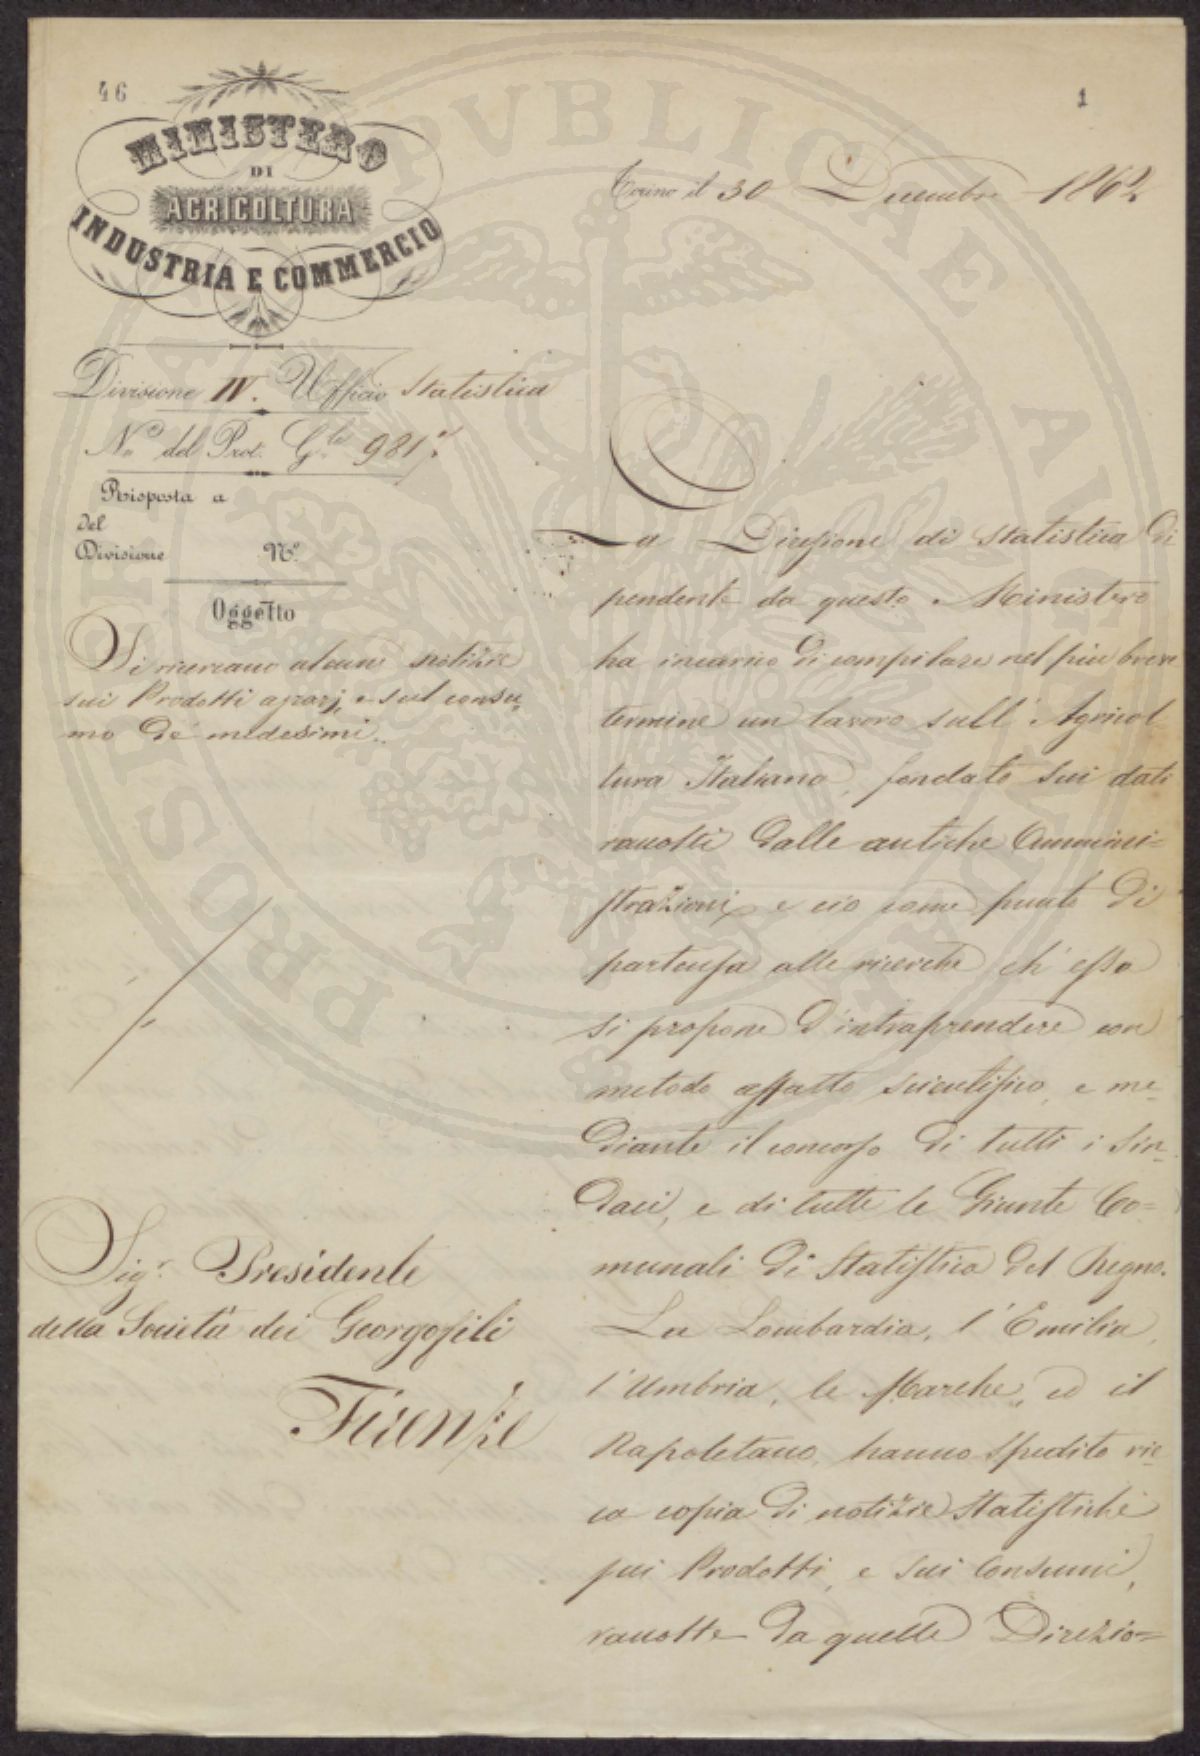 46
1
MINISTERO
DI
AGRICOLTURA
INDUSTRIA E COMMERCIO
Torino il 30 Dicembre 1862
Divisione IV. Ufficio Statistica
N.o del Prot. G.le 981
Risposta a
del
Divisione N.o
Oggetto
Si ricercano alcune notizie
sui Prodotti agrarj, e sul consu-
mo de' medesimi.
Sig.r Presidente
della Società dei Georgofili
Firenze
La Direzione di Statistica di
pendente da questo Ministero
ha incarico di compilare nel più breve
termine un lavoro sull'Agricol
tura Italiana, fondato sui dati
raccolti dalle antiche Ammini=
strazioni, e ciò come punto di
partenza alle ricerche ch'essa
si propone d'intraprendere con
metodo affatto scientifico, e me-
diante il concorso di tutti i Sin-
daci, e di tutte le Giunte Co=
munali di Statistica del Regno.
La Lombardia, l'Emilia,
l'Umbria, le Marche, ed il
Napoletano, hanno spedito ric-
ca copia di notizie Statistiche
sui Prodotti, e sui Consumi,
raccolte da quelle Direzio=
PROSPERITATI PUBLICAE AUGENDAE